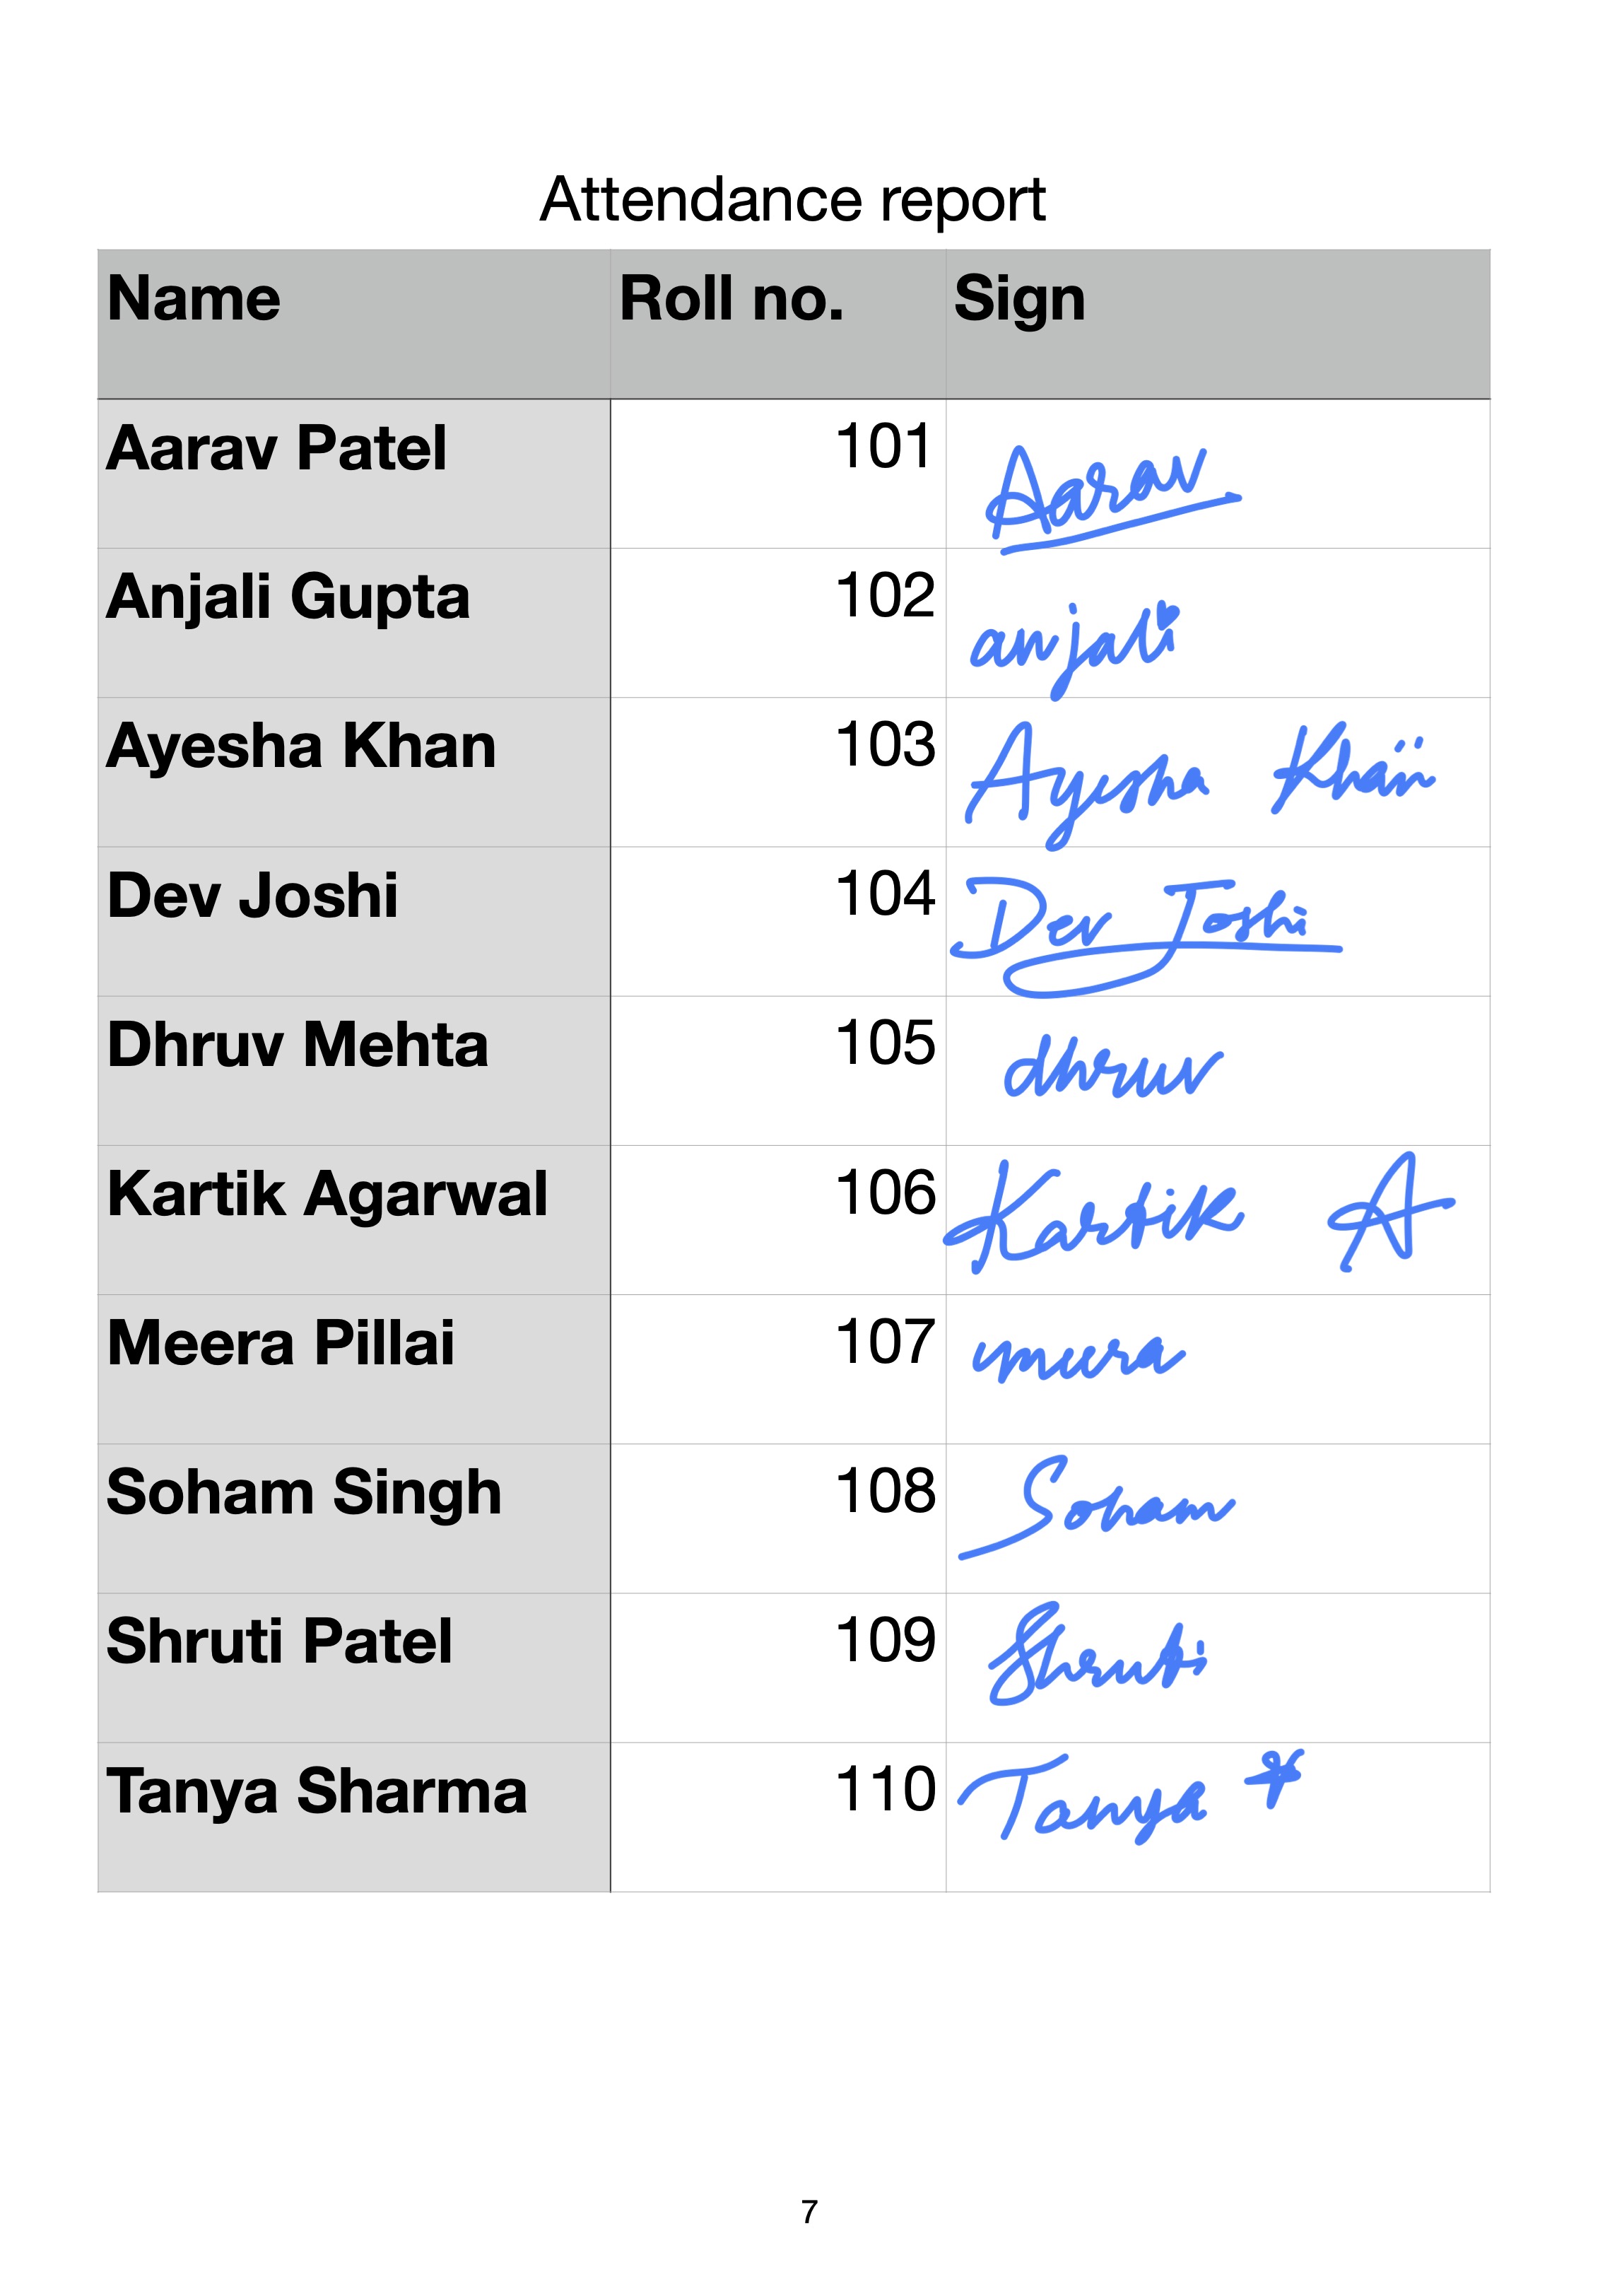 Attendance report
Name Roll no. Sign
Aarav Patel 101 Aarav
Anjali Gupta 102 anjali
Ayesha Khan 103 Ayesha Khan
Dev Joshi 104 Dev Joshi
Dhruv Mehta 105 dhruv
Kartik Agarwal 106 Kartik A
Meera Pillai 107 meera
Soham Singh 108 Soham
Shruti Patel 109 Shruti
Tanya Sharma 110 Tanya *
7